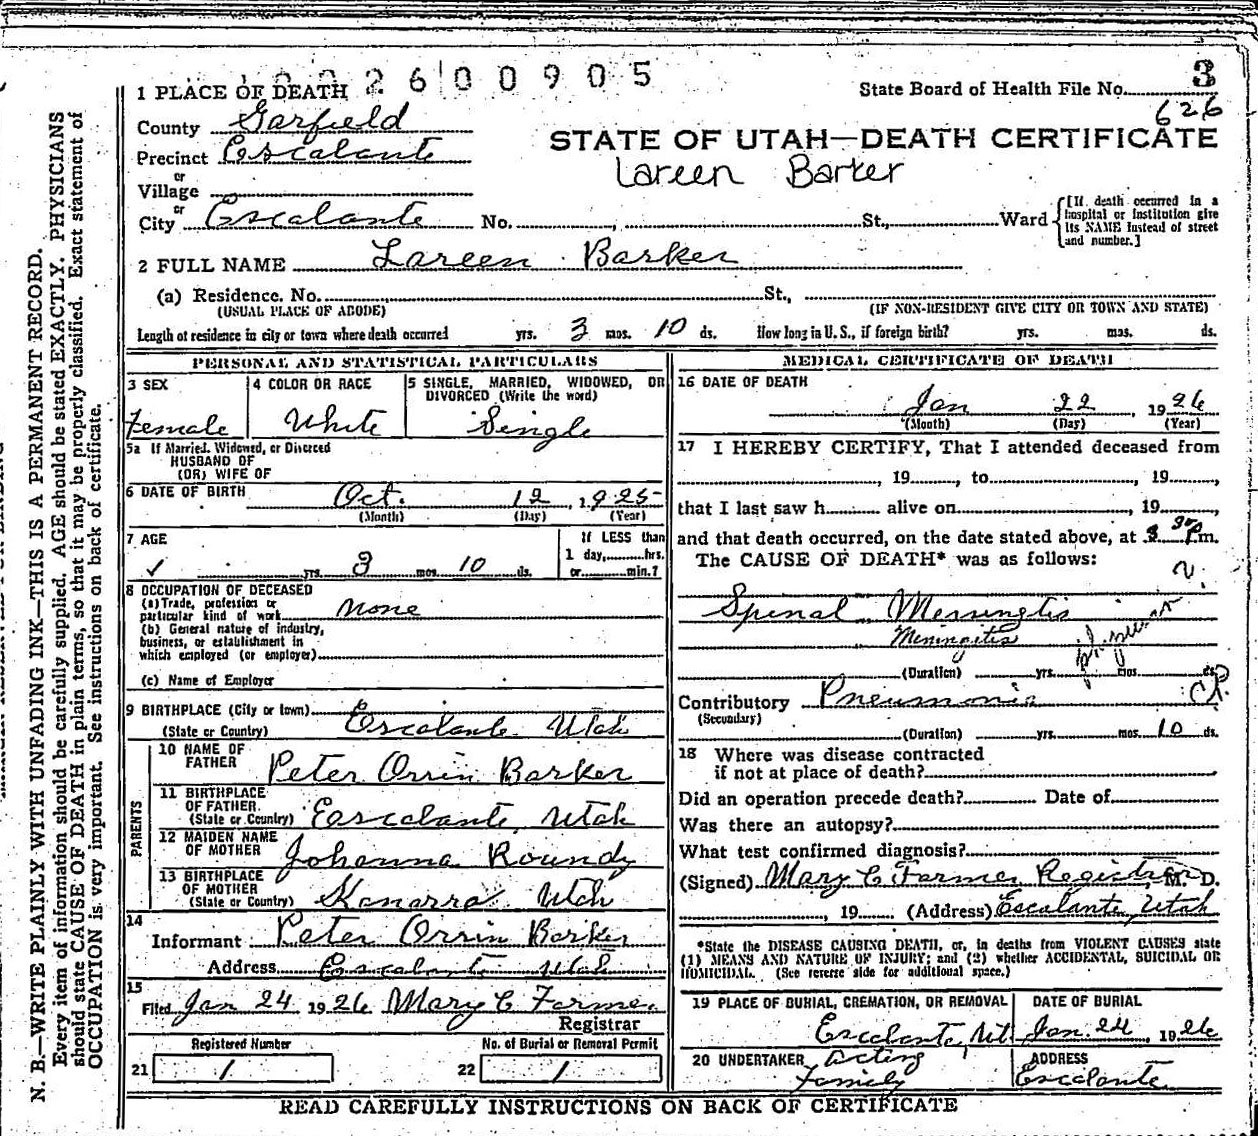 2600905
3
1 PLACE OF DEATH
State Board of Health File No.
626
County Garfield
STATE OF UTAH—DEATH CERTIFICATE
Precinct Escalante
Lareen Barker
or
Village
or
City Escalante No. , St., Ward
[If death occurred in a
hospital or institution give
its NAME instead of street
and number.]
2 FULL NAME Lareen Barker
(a) Residence. No. St.,
(USUAL PLACE OF ABODE) (IF NON-RESIDENT GIVE CITY OR TOWN AND STATE)
Length of residence in city or town where death occurred yrs. 3 mos. 10 ds. How long in U. S., if foreign birth? yrs. mos. ds.
PERSONAL AND STATISTICAL PARTICULARS
3 SEX
Female
4 COLOR OR RACE
White
5 SINGLE, MARRIED, WIDOWED, OR
DIVORCED (Write the word)
Single
5a If Married, Widowed, or Divorced
HUSBAND OF
(OR) WIFE OF
6 DATE OF BIRTH Oct. 12, 1925
(Month) (Day) (Year)
7 AGE
yrs. 3 mos. 10 ds.
If LESS than
1 day, hrs.
or min.?
8 OCCUPATION OF DECEASED
(a) Trade, profession or
particular kind of work None
(b) General nature of industry,
business, or establishment in
which employed (or employer)
(c) Name of Employer
9 BIRTHPLACE (City or town)
(State or Country) Escalante Utah
PARENTS
10 NAME OF
FATHER Peter Orrin Barker
11 BIRTHPLACE
OF FATHER
(State or Country) Escalante, Utah
12 MAIDEN NAME
OF MOTHER Johanna Roundy
13 BIRTHPLACE
OF MOTHER
(State or Country) Kanarra Utah
14
Informant Peter Orrin Barker
Address Escalante Utah
15
Filed Jan 24 1926 Mary C Farmer
Registrar
Registered Number No. of Burial or Removal Permit
21 1 22 1
MEDICAL CERTIFICATE OF DEATH
16 DATE OF DEATH
Jan 22, 1926
(Month) (Day) (Year)
17 I HEREBY CERTIFY, That I attended deceased from
, 19 , to , 19 ,
that I last saw h alive on , 19
and that death occurred, on the date stated above, at 8 30 P.m.
The CAUSE OF DEATH* was as follows:
Spinal Meningtis
Meningitis
(Duration) yrs. mos. ds.
Contributory Pneumonia
(Secondary)
(Duration) yrs. mos. 10 ds.
18 Where was disease contracted
if not at place of death?
Did an operation precede death? Date of
Was there an autopsy?
What test confirmed diagnosis?
(Signed) Mary C Farmer Registrar, M. D.
, 19 (Address) Escalante, Utah
*State the DISEASE CAUSING DEATH, or, in deaths from VIOLENT CAUSES state
(1) MEANS AND NATURE OF INJURY; and (2) whether ACCIDENTAL, SUICIDAL OR
HOMICIDAL. (See reverse side for additional space.)
19 PLACE OF BURIAL, CREMATION, OR REMOVAL
Escalante, Ut.
DATE OF BURIAL
Jan. 24, 1926
20 UNDERTAKER Acting
Family
ADDRESS
Escalante
READ CAREFULLY INSTRUCTIONS ON BACK OF CERTIFICATE
N. B.—WRITE PLAINLY WITH UNFADING INK—THIS IS A PERMANENT RECORD.
Every item of information should be carefully supplied. AGE should be stated EXACTLY. PHYSICIANS
should state CAUSE OF DEATH in plain terms, so that it may be properly classified. Exact statement of
OCCUPATION is very important. See instructions on back of certificate.